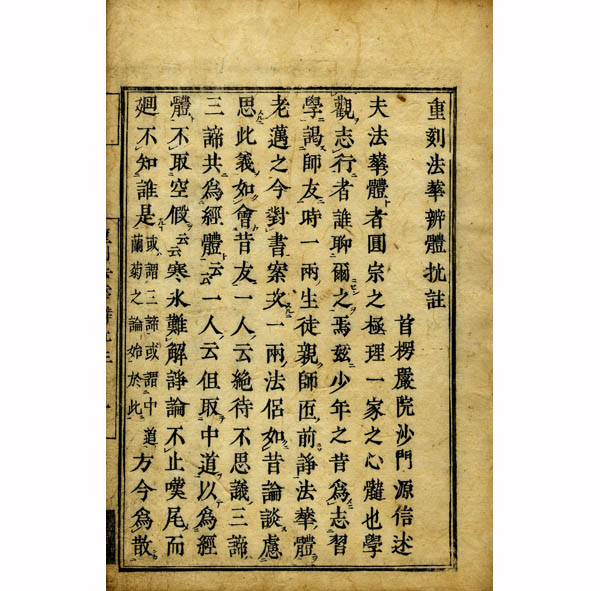 重刻法華辨體註
首楞嚴院沙門源信述
夫法華體者圓宗之極理一家之心髓也學
觀志行者誰聊爾之焉玆少年之昔爲志習
學謁師友時一兩生徒親師匠前諍法華體
老邁之今對書案次一兩法侶如昔論談慮
思此義如會昔友一人云絶待不思議三諦
三諦共爲經體云云一人云但取中道以爲經
體不取空假云云寒氷難解諍論不止嘆尾而
廻不知誰是或謂三諦或謂中道蘭菊之論始於此方今爲散